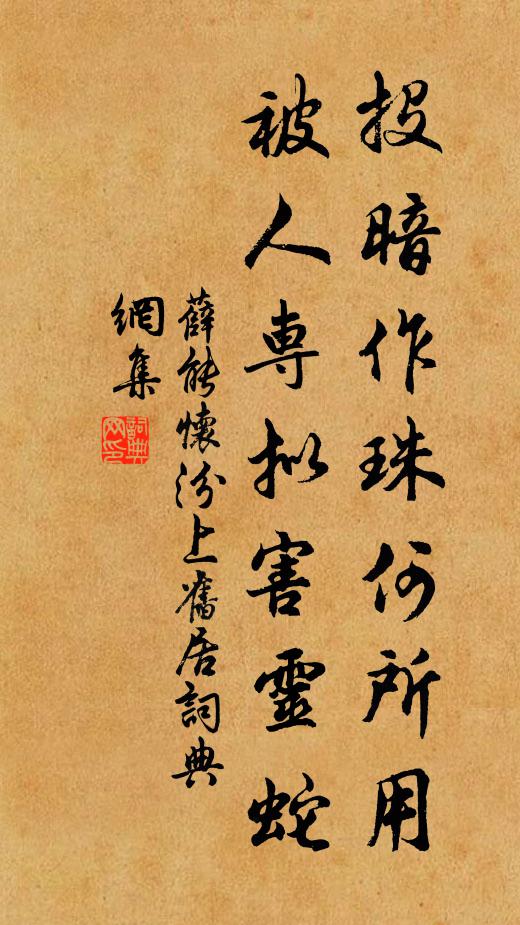 投暗作珠何所用
被人専拟害靈蛇
薛能懷汾上舊居詞典
網集
詞典
网印